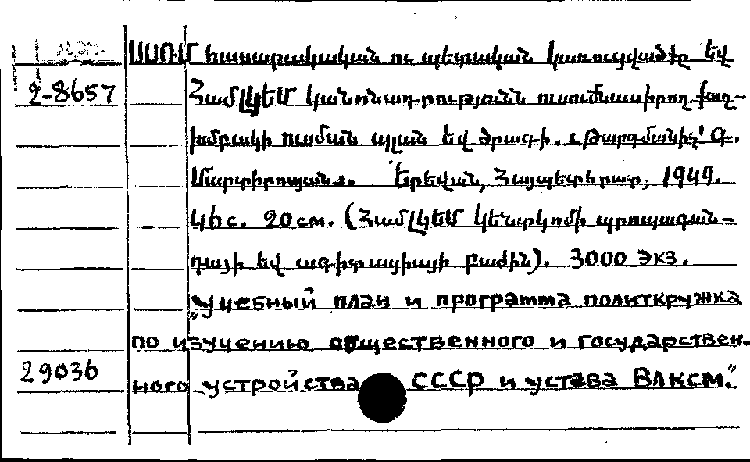 ՍՍՌՄ հասարակական ու պետական կառուցվածքը եվ
2-8657 ՀամԼԿԵՄ կանոնադրությունն ուսումնասիրող քաղ-
խմբակի ուսման պլան եվ ծրագի. Թարգմանիչ՝ Գ.
Մարտիրոսյան։ Երեվան, Հայպետհրատ, 1949.
Կիս. 20см. (ՀամԼԿԵՄ Կենտկոմի պրոպագան-
դայի եվ ագիտացիայի բաժին). 3000 экз.
„Учебный план и программа политкружка
по изучению общественного и государствен-
29036 ного устройства СССР и устава ВЛКСМ."